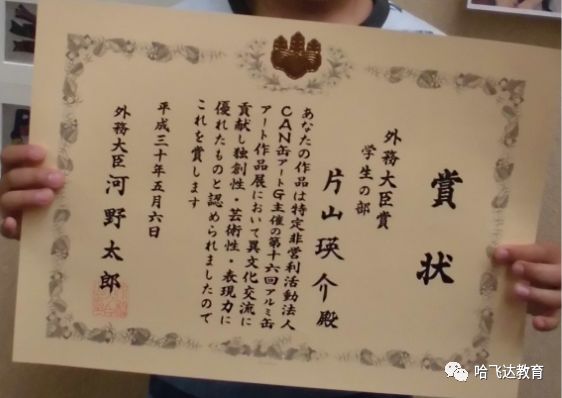 賞状
外務大臣賞
学生の部
片山瑛介殿
あなたの作品は特定非営利活動法人
CAN缶アートG主催の第十六回アルミ缶
アート作品展において異文化交流に
貢献し独創性・芸術性・表現力に
優れたものと認められましたので
これを賞します
平成三十年五月六日
外務大臣 河野太郎
哈飞达教育